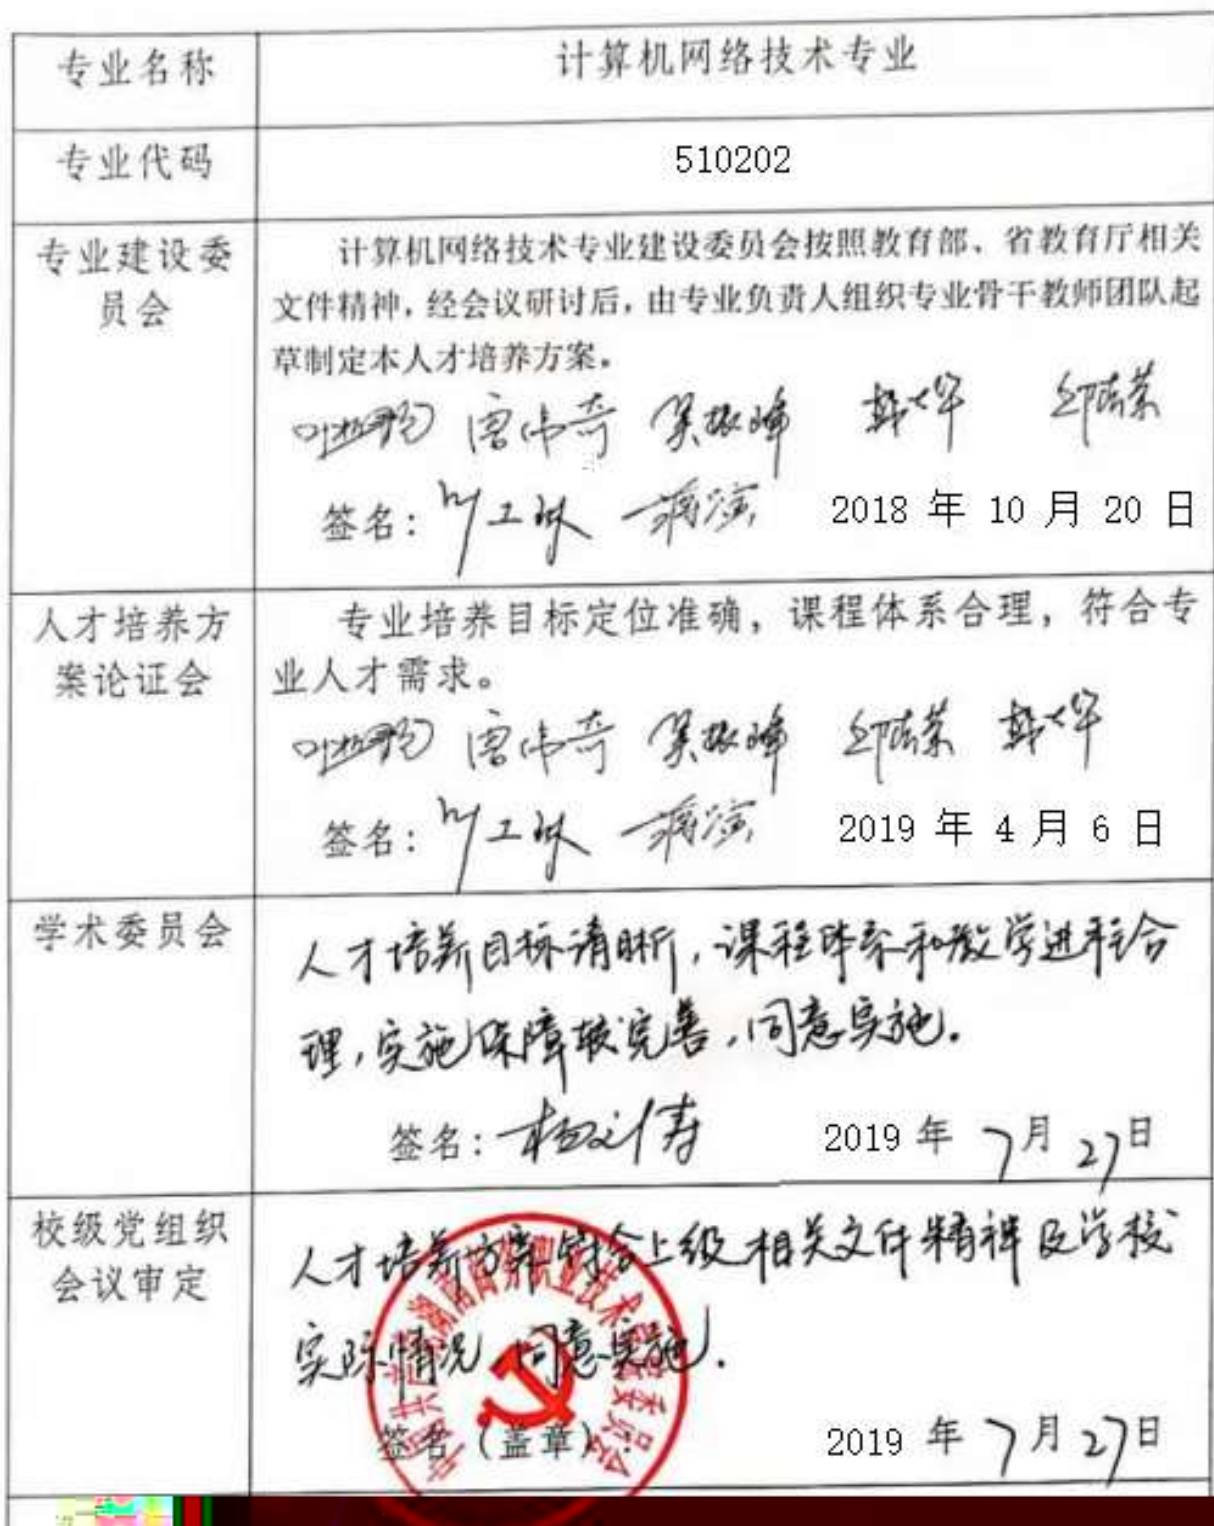 专业名称
计算机网络技术专业
专业代码
510202
专业建设委
员会
计算机网络技术专业建设委员会按照教育部、省教育厅相关
文件精神，经会议研讨后，由专业负责人组织专业骨干教师团队起
草制定本人才培养方案。
唐伟奇 吴振峰
签名： 2018 年 10 月 20 日
人才培养方
案论证会
专业培养目标定位准确，课程体系合理，符合专
业人才需求。
唐伟奇 吴振峰
签名： 2019 年 4 月 6 日
学术委员会
人才培养目标清晰，课程体系和教学进程合
理，实施保障较完善，同意实施。
签名： 2019 年 7月 27日
校级党组织
会议审定
人才培养方案符合上级相关文件精神及学校
实际情况，同意实施.
签名（盖章）： 2019 年 7月 27日